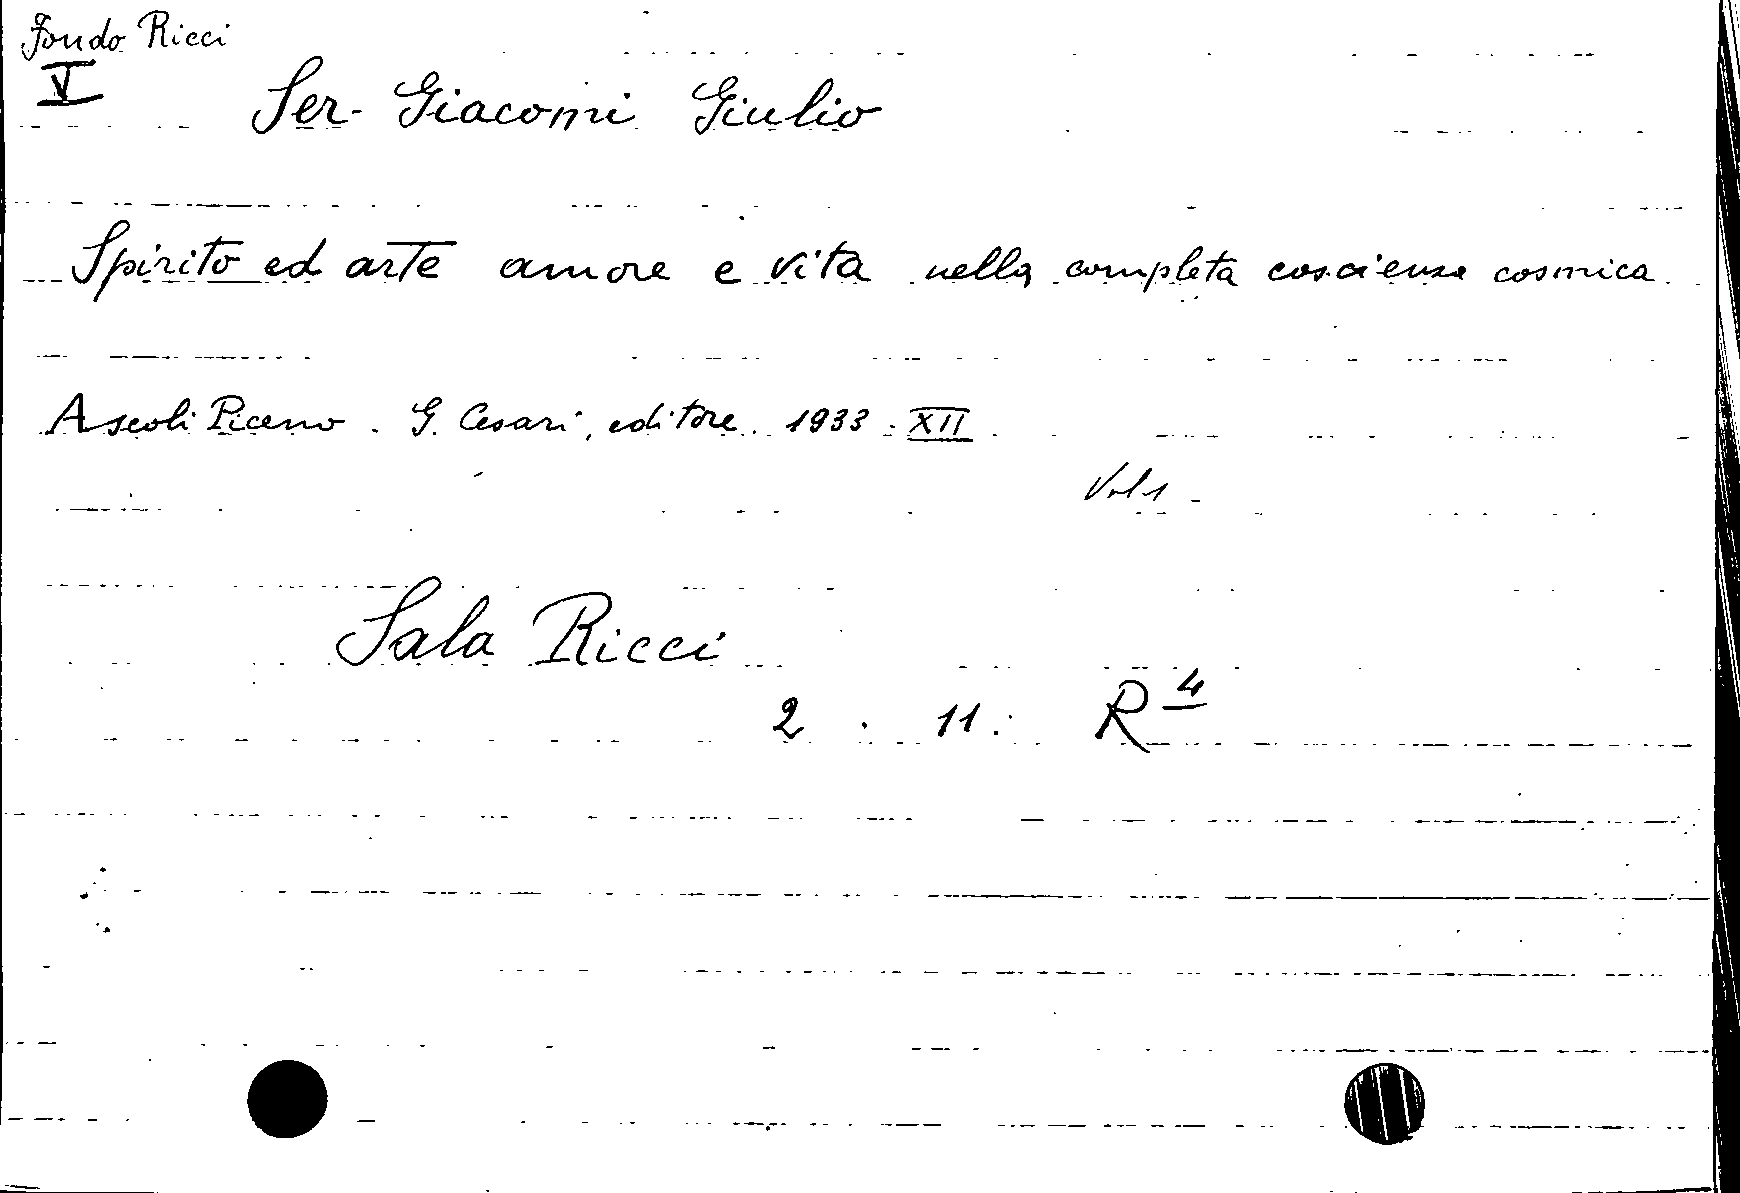 Fondo Ricci
V
Ser-Giacomi Giulio
Spirito ed arte amore e vita nella completa coscienza cosmica
Ascoli Piceno. G. Cesari, editore. 1933. XII
Vol 1 -
Sala Ricci
2 . 11. R 4